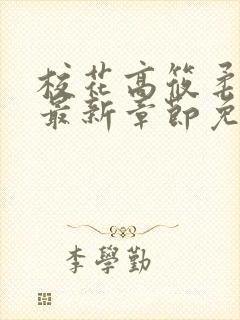 校花高筱柔
最新章節免
李學勤